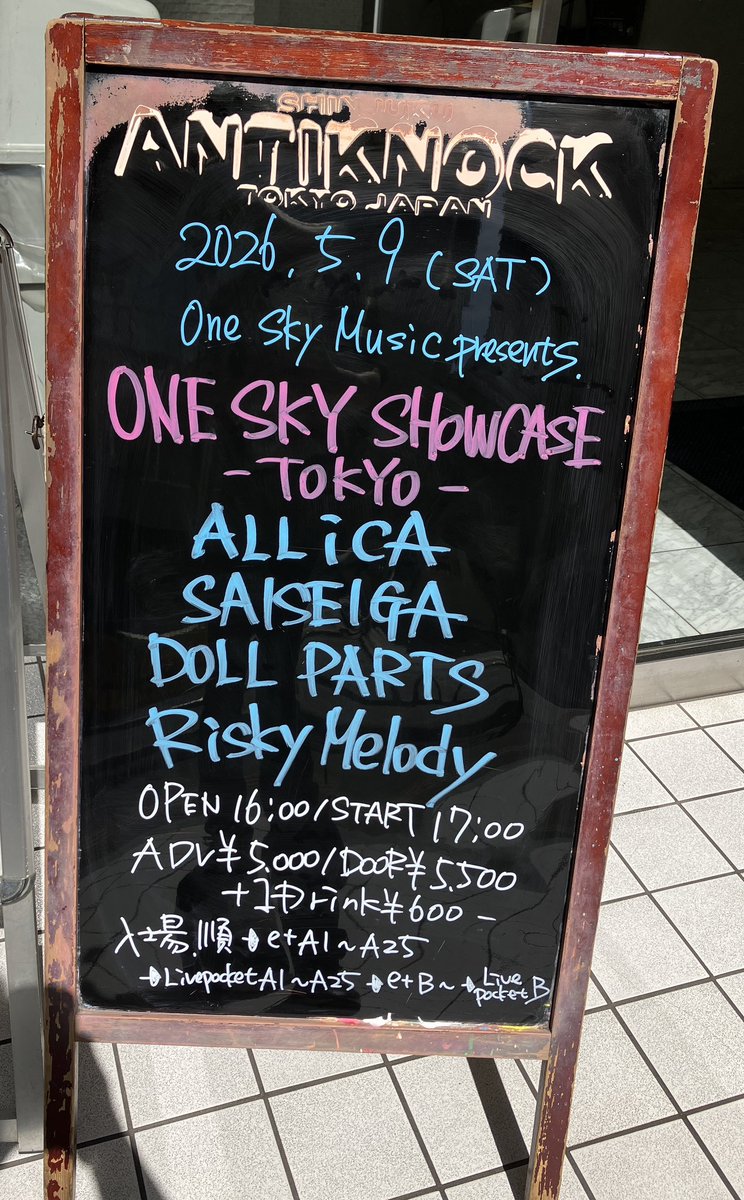 SHINJUKU
ANTIKNOCK
TOKYO JAPAN
2026.5.9 (SAT)
One Sky Music presents.
ONE SKY SHOWCASE
- TOKYO -
ALLiCA
SAISEIGA
DOLL PARTS
Risky Melody
OPEN 16:00/START 17:00
ADV¥5.000/DOOR¥5.500
+1Drink¥600-
入場順→e+A1~A25
→LivepocketA1~A25→e+B~→Live pocket B